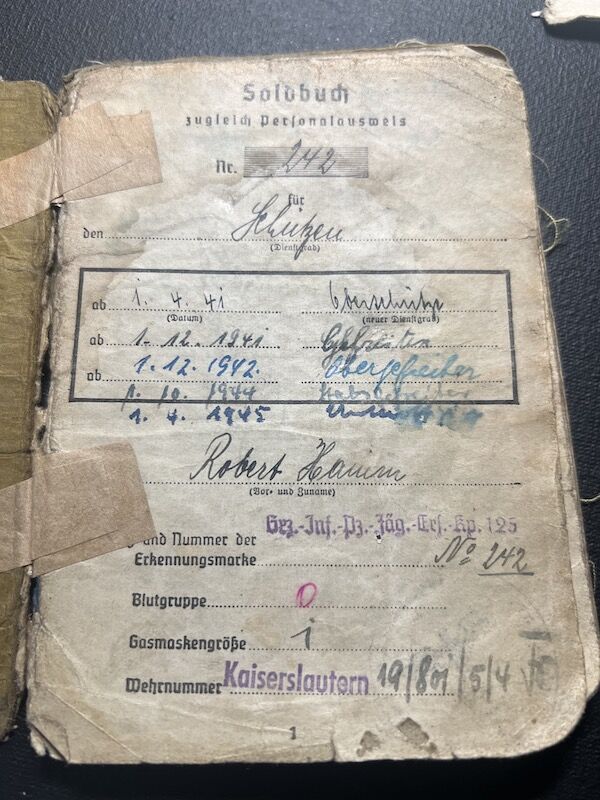 Soldbuch
zugleich Personalausweis
Nr. 242
für
den Schützen
(Dienstgrad)
ab 1. 4. 41 Oberschütze
(Datum) (neuer Dienstgrad)
ab 1. 12. 1941 Gefreiten
ab 1. 12. 1942. Obergefreiter
1. 10. 1944 Stabsgefreiter
1. 4. 1945
Robert Hamm
(Vor- und Zuname)
Grz.-Inf.-Pz.-Jäg.-Ers.-Kp. 125
und Nummer der
Erkennungsmarke No 242
Blutgruppe O
Gasmaskengröße i
Wehrnummer Kaiserslautern 19/801/5/4
1